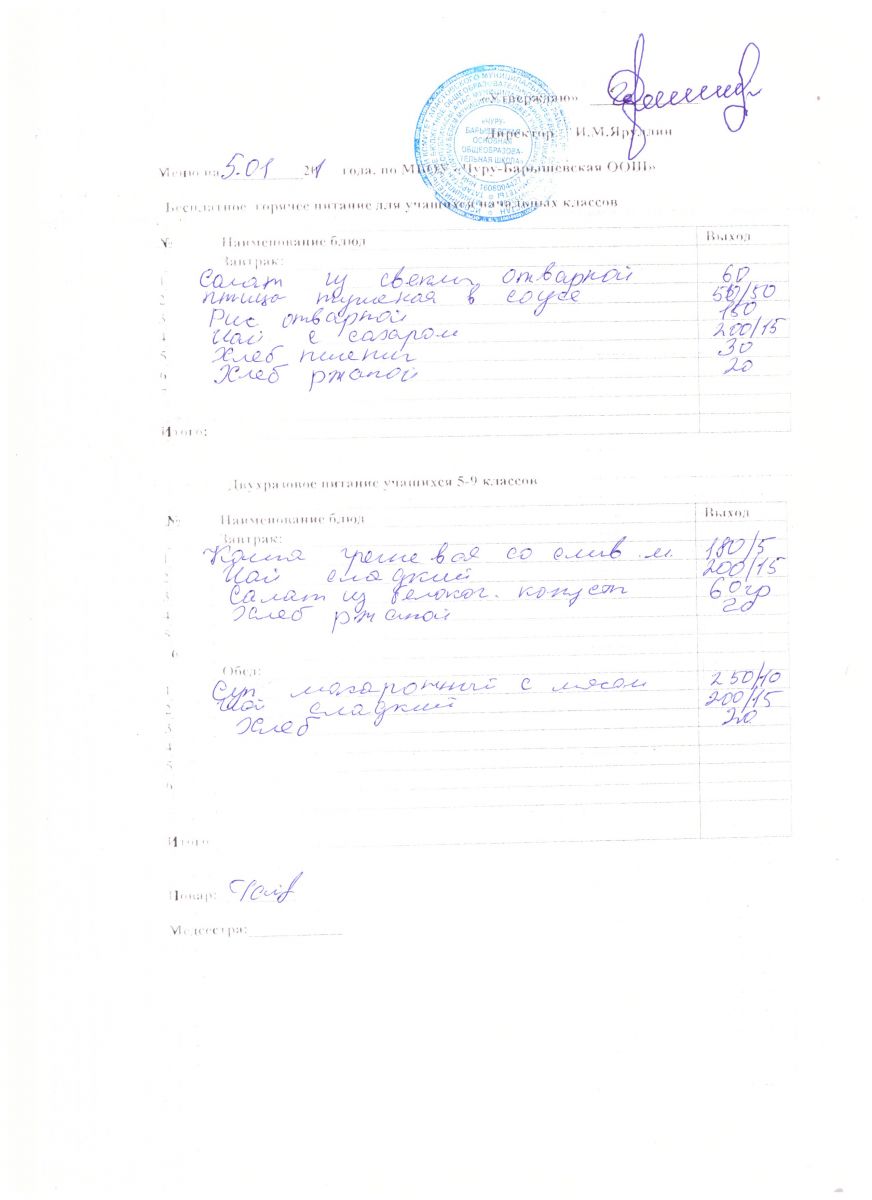 «Утверждаю»
Директор И.М.Яруллин
«ЧУРУ-
БАРЫШЕВСКАЯ
ОСНОВНАЯ
ОБЩЕОБРАЗОВА-
ТЕЛЬНАЯ ШКОЛА»
Меню на 5.01 года. по МБОУ «Чуру-Барышевская ООШ»
Бесплатное горячее питание для учащихся начальных классов
№ Наименование блюд Выход
Завтрак:
1 Салат из свеклы отварной 60
2 птица тушеная в соусе 50/50
3 Рис отварной 150
4 Чай с сахаром 200/15
5 Хлеб пшенич 30
6 Хлеб ржаной 20
7
Итого:
Двухразовое питание учащихся 5-9 классов
№ Наименование блюд Выход
Завтрак:
1 Каша гречневая со слив м. 180/5
2 Чай сладкий 200/15
3 Салат из белокач. капуст 60гр
4 Хлеб ржаной 20
5
6
Обед:
1 Суп макаронный с мясом 250/10
2 Чай сладкий 200/15
3 Хлеб 20
4
5
6
Итого
Повар:
Медсестра: